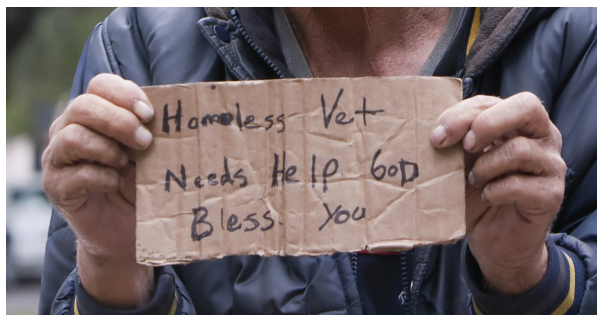 Homeless Vet
Needs Help GOD
Bless. You